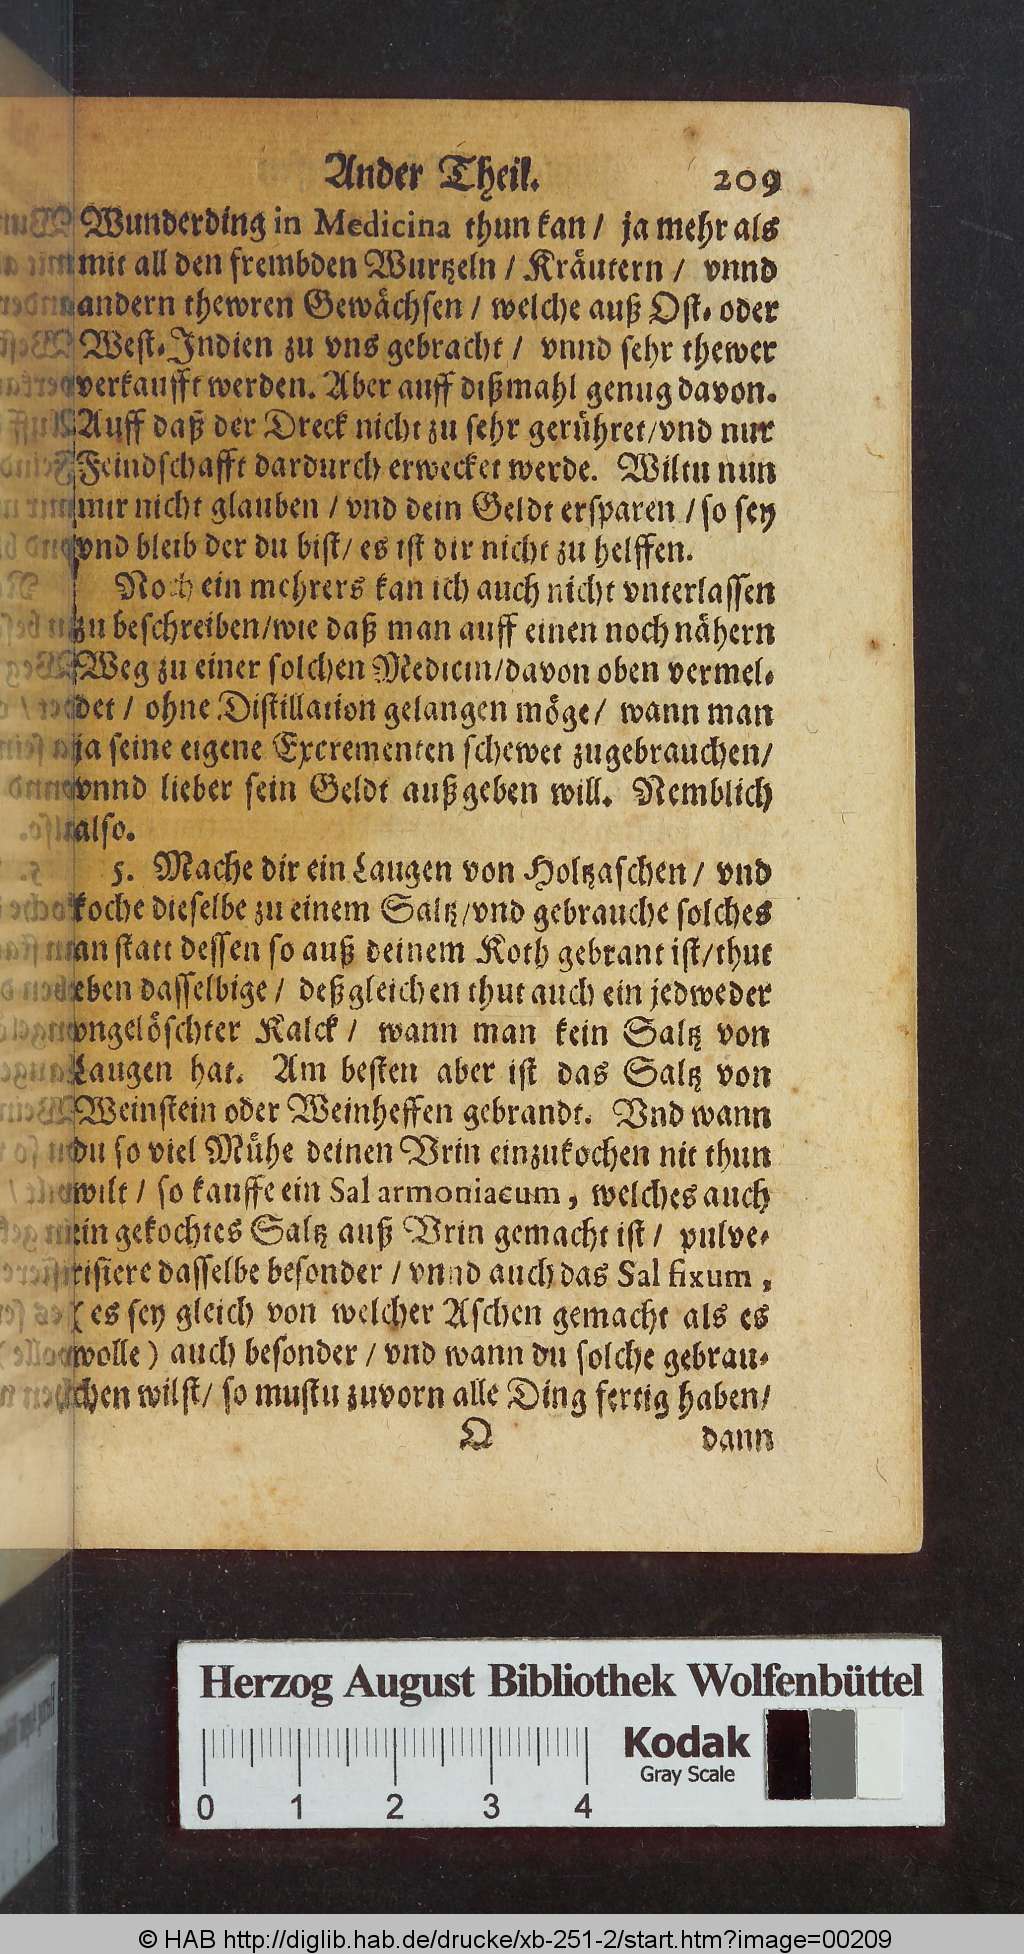 Ander Theil. 209
Wunderding in Medicina thun kan / ja mehr als
mit all den frembden Wurtzeln / Kräutern / vnnd
andern thewren Gewächsen / welche auß Ost- oder
West-Indien zu vns gebracht / vnnd sehr thewer
verkaufft werden. Aber auff dißmahl genug davon.
Auff daß der Dreck nicht zu sehr gerühret/vnd nur
Feindschafft dardurch erwecket werde. Wiltu nun
mir nicht glauben / vnd dein Geldt ersparen / so sey
vnd bleib der du bist/ es ist dir nicht zu helffen.
Noch ein mehrers kan ich auch nicht vnterlassen
zu beschreiben/wie daß man auff einen noch nähern
Weg zu einer solchen Medicin/davon oben vermel-
det / ohne Distillation gelangen möge/ wann man
ja seine eigene Excrementen schewet zugebrauchen/
vnnd lieber sein Geldt außgeben will. Nemblich
also.
5. Mache dir ein Laugen von Holtzaschen / vnd
koche dieselbe zu einem Saltz/vnd gebrauche solches
an statt dessen so auß deinem Koth gebrant ist/thut
eben dasselbige / deßgleichen thut auch ein jedweder
vngelöschter Kalck / wann man kein Saltz von
Laugen hat. Am besten aber ist das Saltz von
Weinstein oder Weinheffen gebrandt. Vnd wann
du so viel Mühe deinen Vrin einzukochen nit thun
wilt / so kauffe ein Sal armoniacum, welches auch
ein gekochtes Saltz auß Vrin gemacht ist / pulve-
risiere dasselbe besonder / vnnd auch das Sal fixum,
( es sey gleich von welcher Aschen gemacht als es
wolle ) auch besonder / vnd wann du solche gebrau-
chen wilst/ so mustu zuvorn alle Ding fertig haben/
O dann
Herzog August Bibliothek Wolfenbüttel
Kodak
Gray Scale
0 1 2 3 4
© HAB http://diglib.hab.de/drucke/xb-251-2/start.htm?image=00209